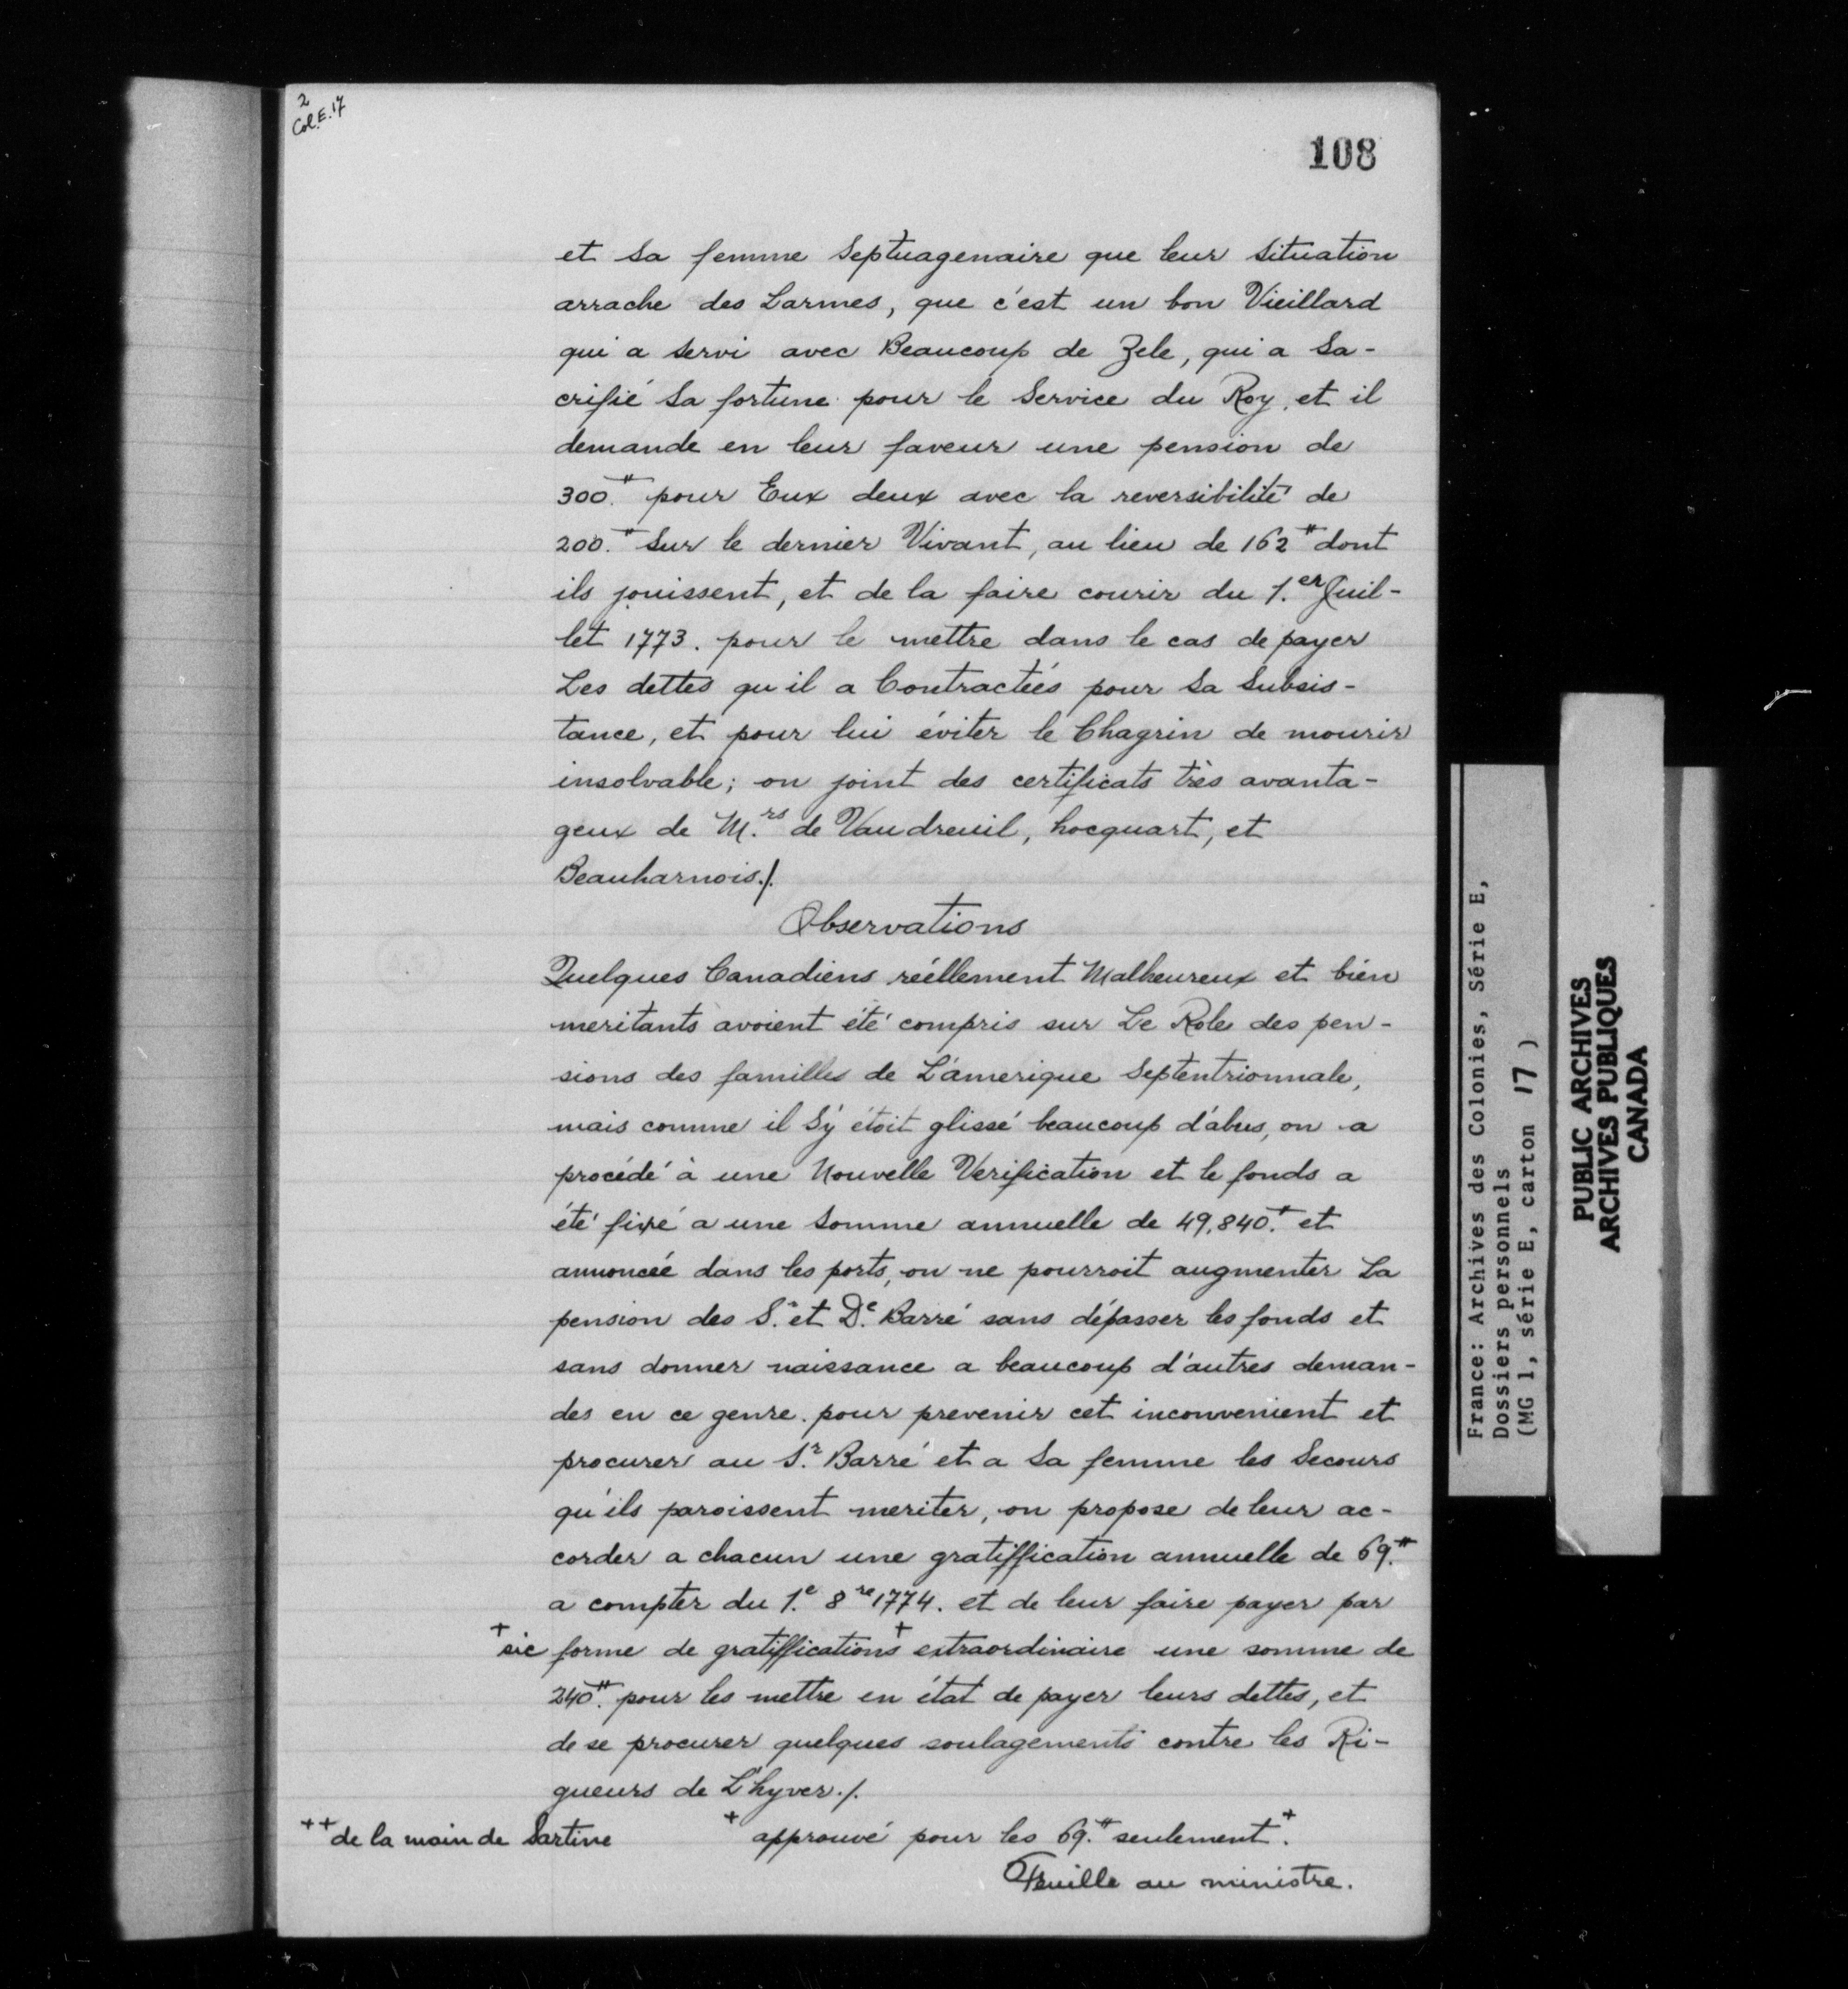 2
Col. E. 17
108
et sa femme Septuagenaire que leur situation
arrache des Larmes, que c'est un bon Vieillard
qui a servi avec Beaucoup de Zele, qui a Sa-
crifié Sa fortune pour le Service du Roy, et il
demande en leur faveur une pension de
300.# pour Eux deux avec la reversibilité de
200.# Sur le dernier Vivant, au lieu de 162# dont
ils jouissent, et de la faire courir du 1.er Juil-
let 1773. pour le mettre dans le cas de payer
Les dettes qu'il a Contractées pour Sa Subsis-
tance, et pour lui éviter le Chagrin de mourir
insolvable; on joint des certificats très avanta-
geux de M.rs de Vaudreuil, hocquart, et
Beauharnois./.
Observations
Quelques Canadiens réellement Malheureux et bien
meritants avoient été compris sur Le Role des pen-
sions des familles de L'amerique Septentrionnale,
mais comme il S'y étoit glissé beaucoup d'abus, on a
procédé à une Nouvelle Verification et le fonds a
été fixé a une Somme annuelle de 49,840.# et
annoncée dans les ports, on ne pourroit augmenter La
pension des S.r et D.e Barré sans dépasser les fonds et
sans donner naissance a beaucoup d'autres deman-
des en ce genre. pour prevenir cet inconvenient et
procurer au S.r Barré et a Sa femme les Secours
qu'ils paroissent meriter, on propose de leur ac-
corder a chacun une gratiffication annuelle de 69.#
a compter du 1.e 8re 1774. et de leur faire payer par
+sic forme de gratiffications+ extraordinaire une somme de
240#. pour les mettre en état de payer leurs dettes, et
de se procurer quelques soulagements contre les Ri-
gueurs de L'hyver./.
++de la main de Sartine +approuvé pour les 69.# seulement.+
Feuille au ministre.
France: Archives des Colonies, Série E,
Dossiers personnels
(MG 1, série E, carton 17)
PUBLIC ARCHIVES
ARCHIVES PUBLIQUES
CANADA